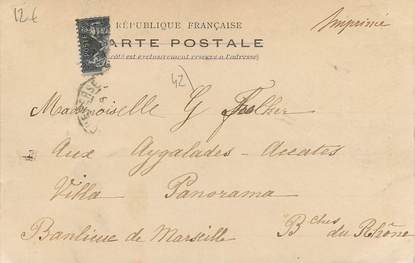 12€
RÉPUBLIQUE FRANÇAISE
Imprimé
CARTE POSTALE
(Ce côté est exclusivement réservé à l'adresse)
42
Mademoiselle G
Aux Aygalades - Accates
Villa Panorama
Banlieue de Marseille
Bches du Rhône